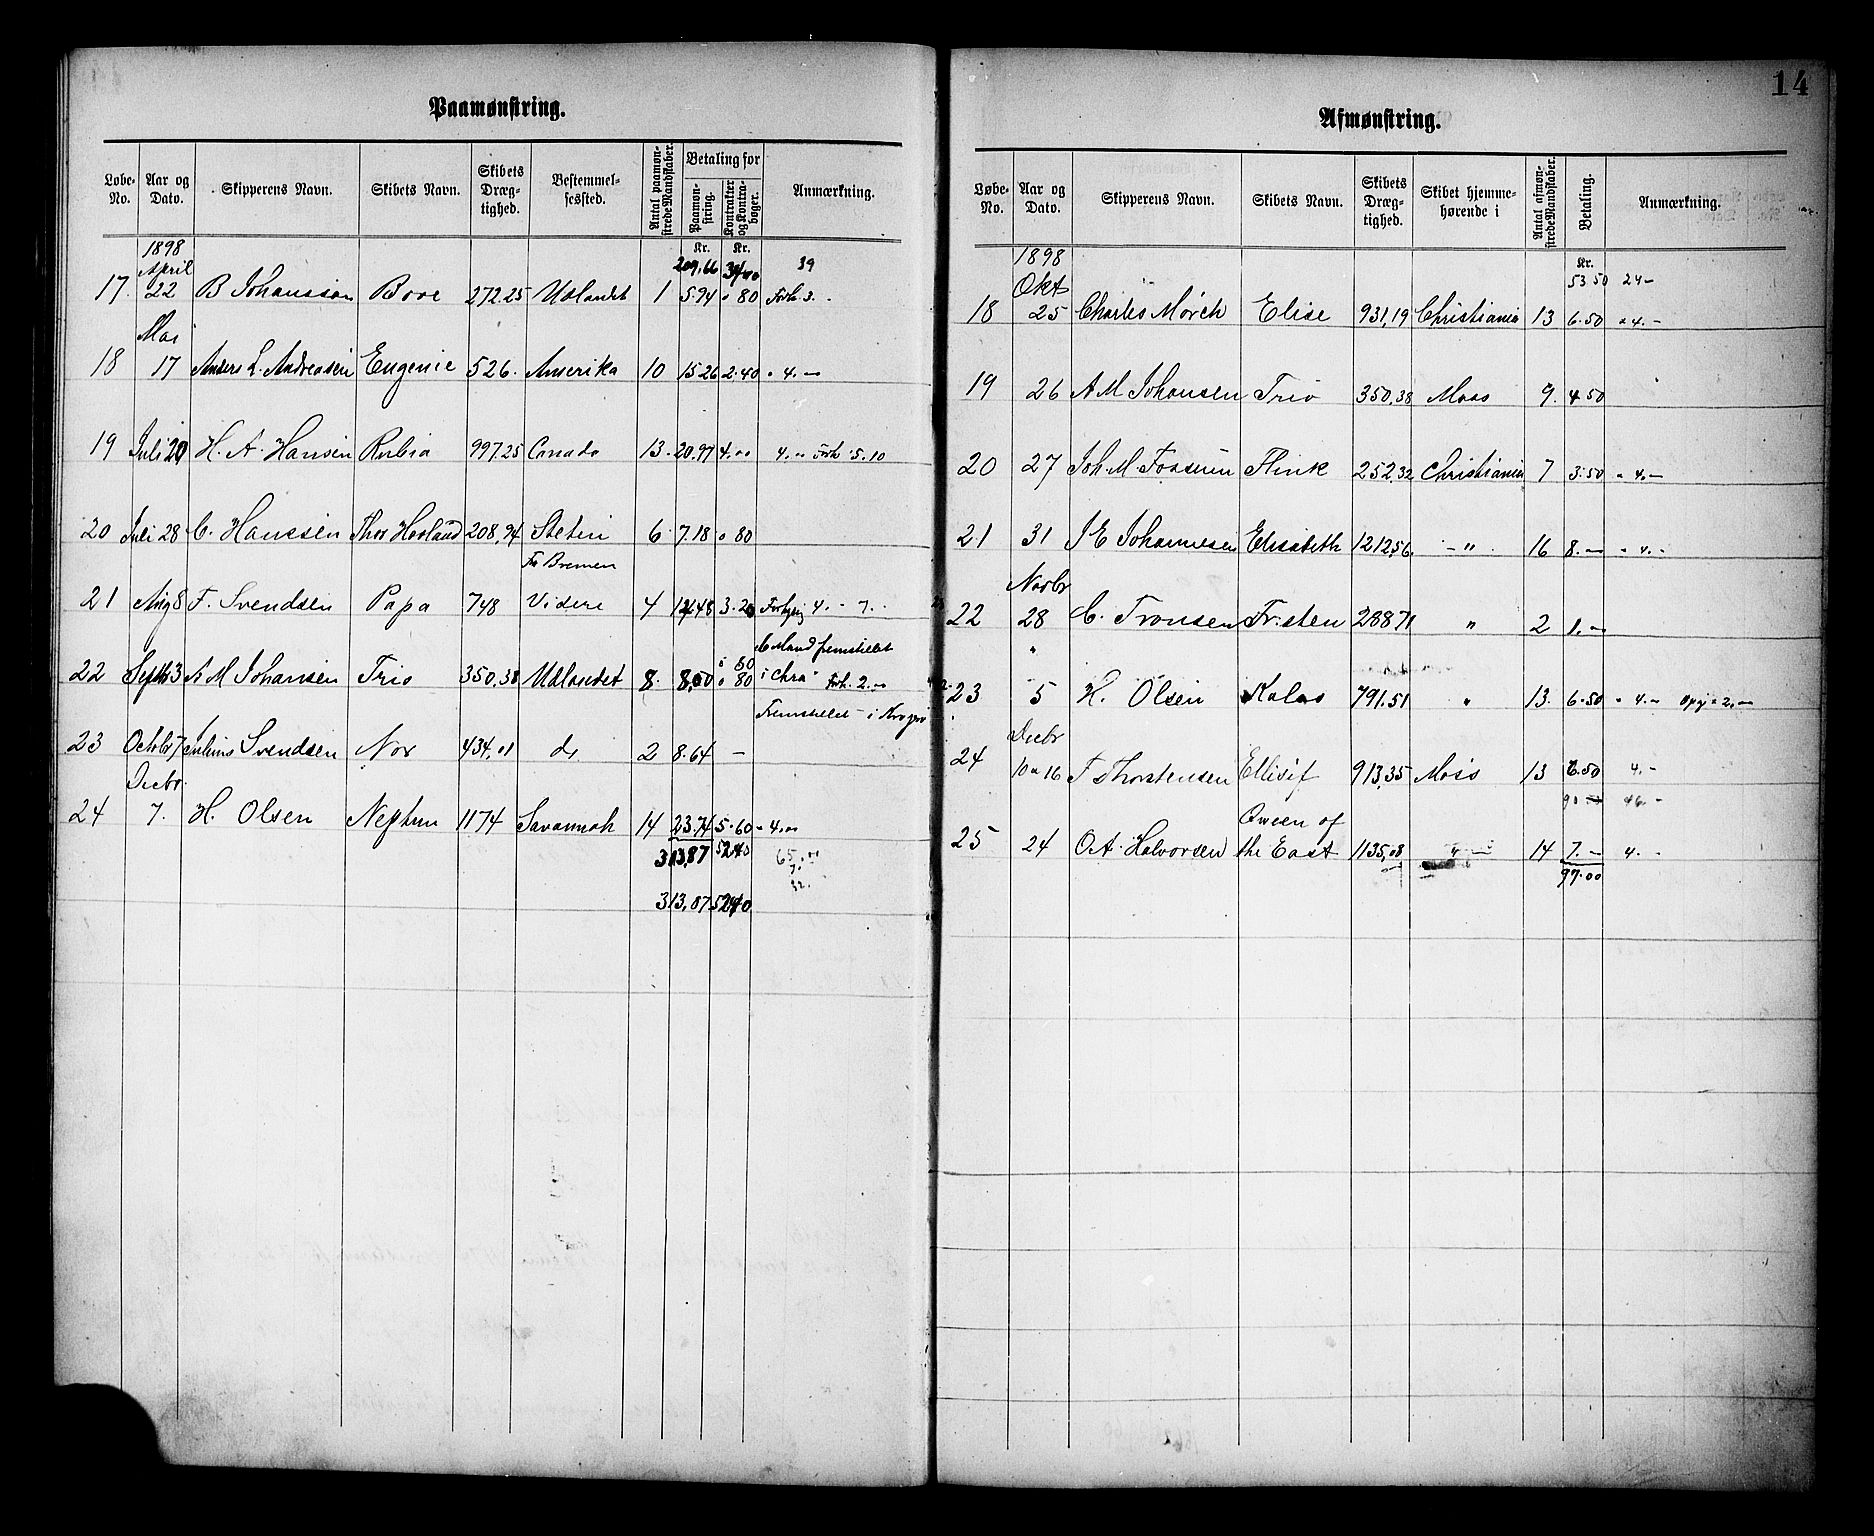 Paamønstring.
Løbe-No. Aar og Dato. Skipperens Navn. Skibets Navn. Skibets Dræg-tighed. Bestemmel-sessted. Antal paamøn-strede Mandskaber. Betaling for Paamøn-string. Kontrakter og Kontra-bøger. Anmærkning.
1898 Kr. Kr.
April 209.66 39
17. 22 B Johansson 272.25 Udlandet 1 5.94 " 80 Forh. 3. -
Mai
18 17 Anders L. Andreasen Eugenie 526. Amerika 10 15.26 2.40 " 4. —
19 Juli 20 H. A. Hansen Rubia 997.25 Canada 13. 20.97 4.00 4.00 Forh. 5.10
20 Juli 28 C. Hanssen Thor Havland 208,94 Stetin 6 7.18 " 80
Fra Bremen
21 Aug 8 F. Svendsen Papa 748 Videre 4 3.20 4. - 7. -
6 Mand fremstillet
22 Septb 3 A M Johansen Trio 350,38 Udlandet 8. 8,00 " 80 i Chra Forh. 2.00
Fremstillet i
23 Octobr 7 Julius Svendsen Nor 434,01 do 2 8.64 —
Decbr
24 7. H. Olsen Neptun 1174 Savannah 14 23.74 5.60 " 4.00
313,87 52.40 65.00
7.
313,87 52.40
14
Afmønstring.
Løbe-No. Aar og Dato. Skipperens Navn. Skibets Navn. Skibets Dræg-tighed. Skibet hjemme-hørende i Antal afmøn-strede Mandskaber. Betaling. Anmærkning.
1898 Kr.
Okt 53.50 24 -
18 25 Charles Mørch Elise 931,19 Christiania 13 6.50 " 4. -
19 26 A M Johansen Trio 350,38 Moss 9. 4 50
20 27 Joh. M. Fossum Flink 252,32 Christiania 7 3.50 " 4. -
21 31 J E Johannesen Elisabeth 1212,56 - " - 16 8. — " 4. -
Novbr
22 28 C. Tronsen Fristen 288 71 " 2 1. —
"
23 5 H. Olsen Kalas 791.51 " 13. 6.50 " 4. —
Decbr
24 10 a 16 T Thorstensen Ellisif 913,35 Moss 13 6.50 4. -
90 — 46. -
Queen of
25 24 O.A. Halvorsen the East 1135,08 " 14 7. — 4. -
97.00